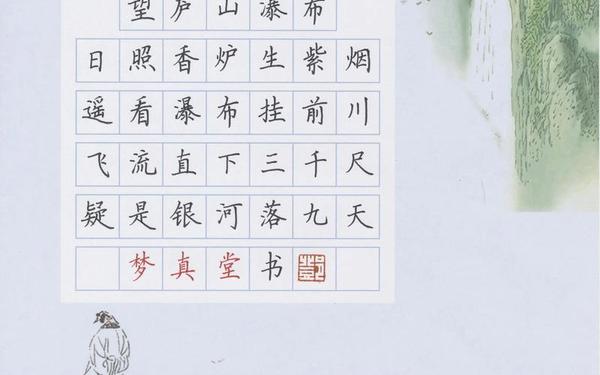 望庐山瀑布
日照香炉生紫烟
遥看瀑布挂前川
飞流直下三千尺
疑是银河落九天
梦真堂书